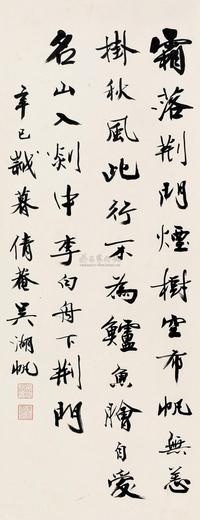 霜落荆門煙樹空布帆無恙
掛秋風此行不為鱸魚膾自愛
名山入剡中李白舟下荆門
辛巳歲暮倩菴吳湖帆